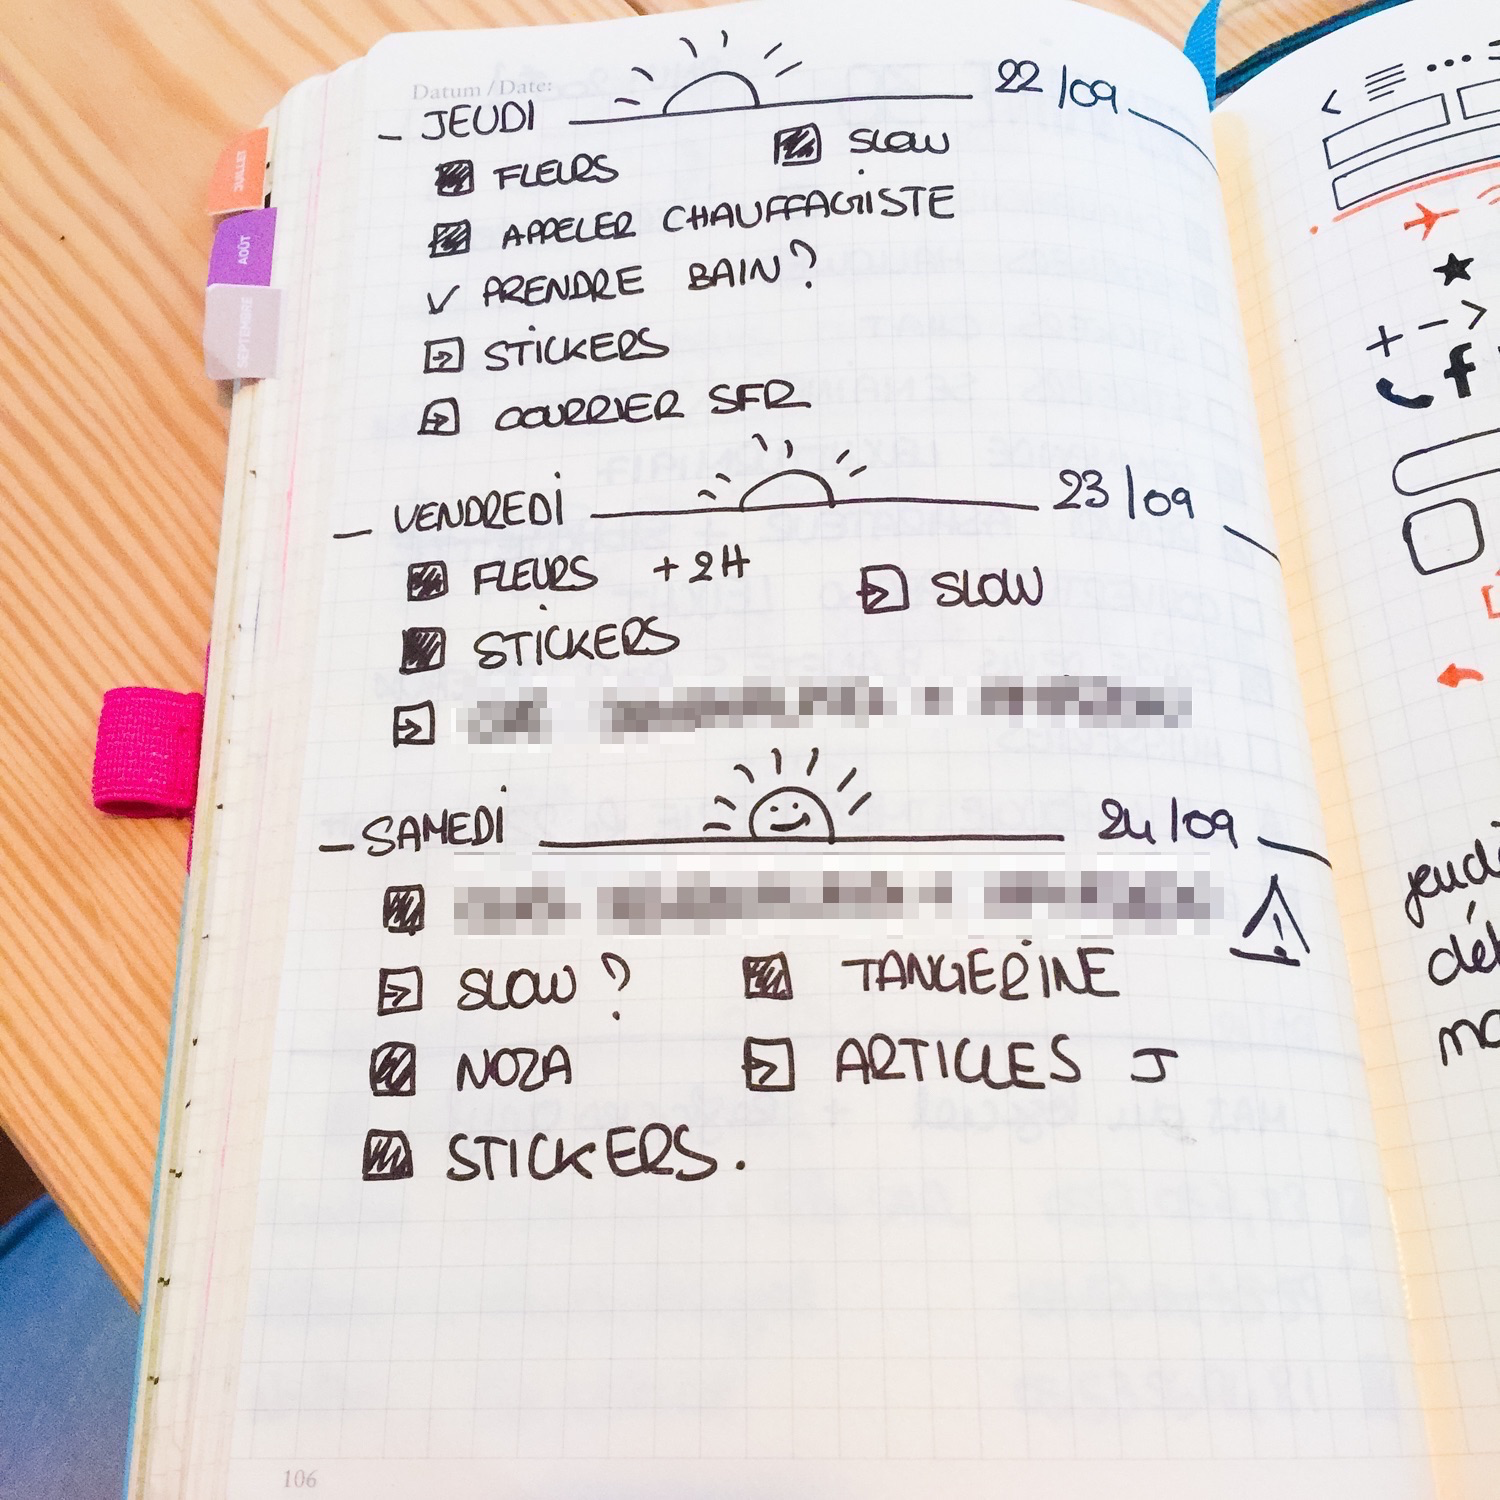 Datum / Date:
JEUDI 22/09
FLEURS SLOW
APPELER CHAUFFAGISTE
PRENDRE BAIN?
STICKERS
COURRIER SFR
VENDREDI 23/09
FLEURS +2H SLOW
STICKERS
SAMEDI 24/09
SLOW ? TANGERINE
NOZA ARTICLES J
STICKERS.
106
JUILLET
AOÛT
SEPTEMBRE
f
jeudi
dé
mo